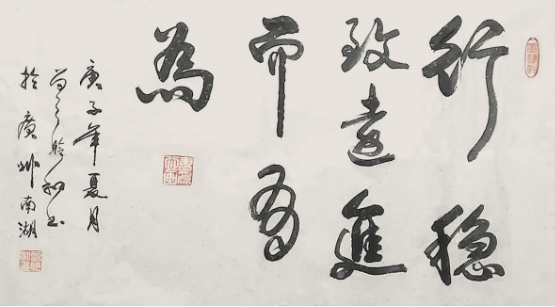 行穩
致遠進
而有
為
庚子年夏月
書
於廣州南湖